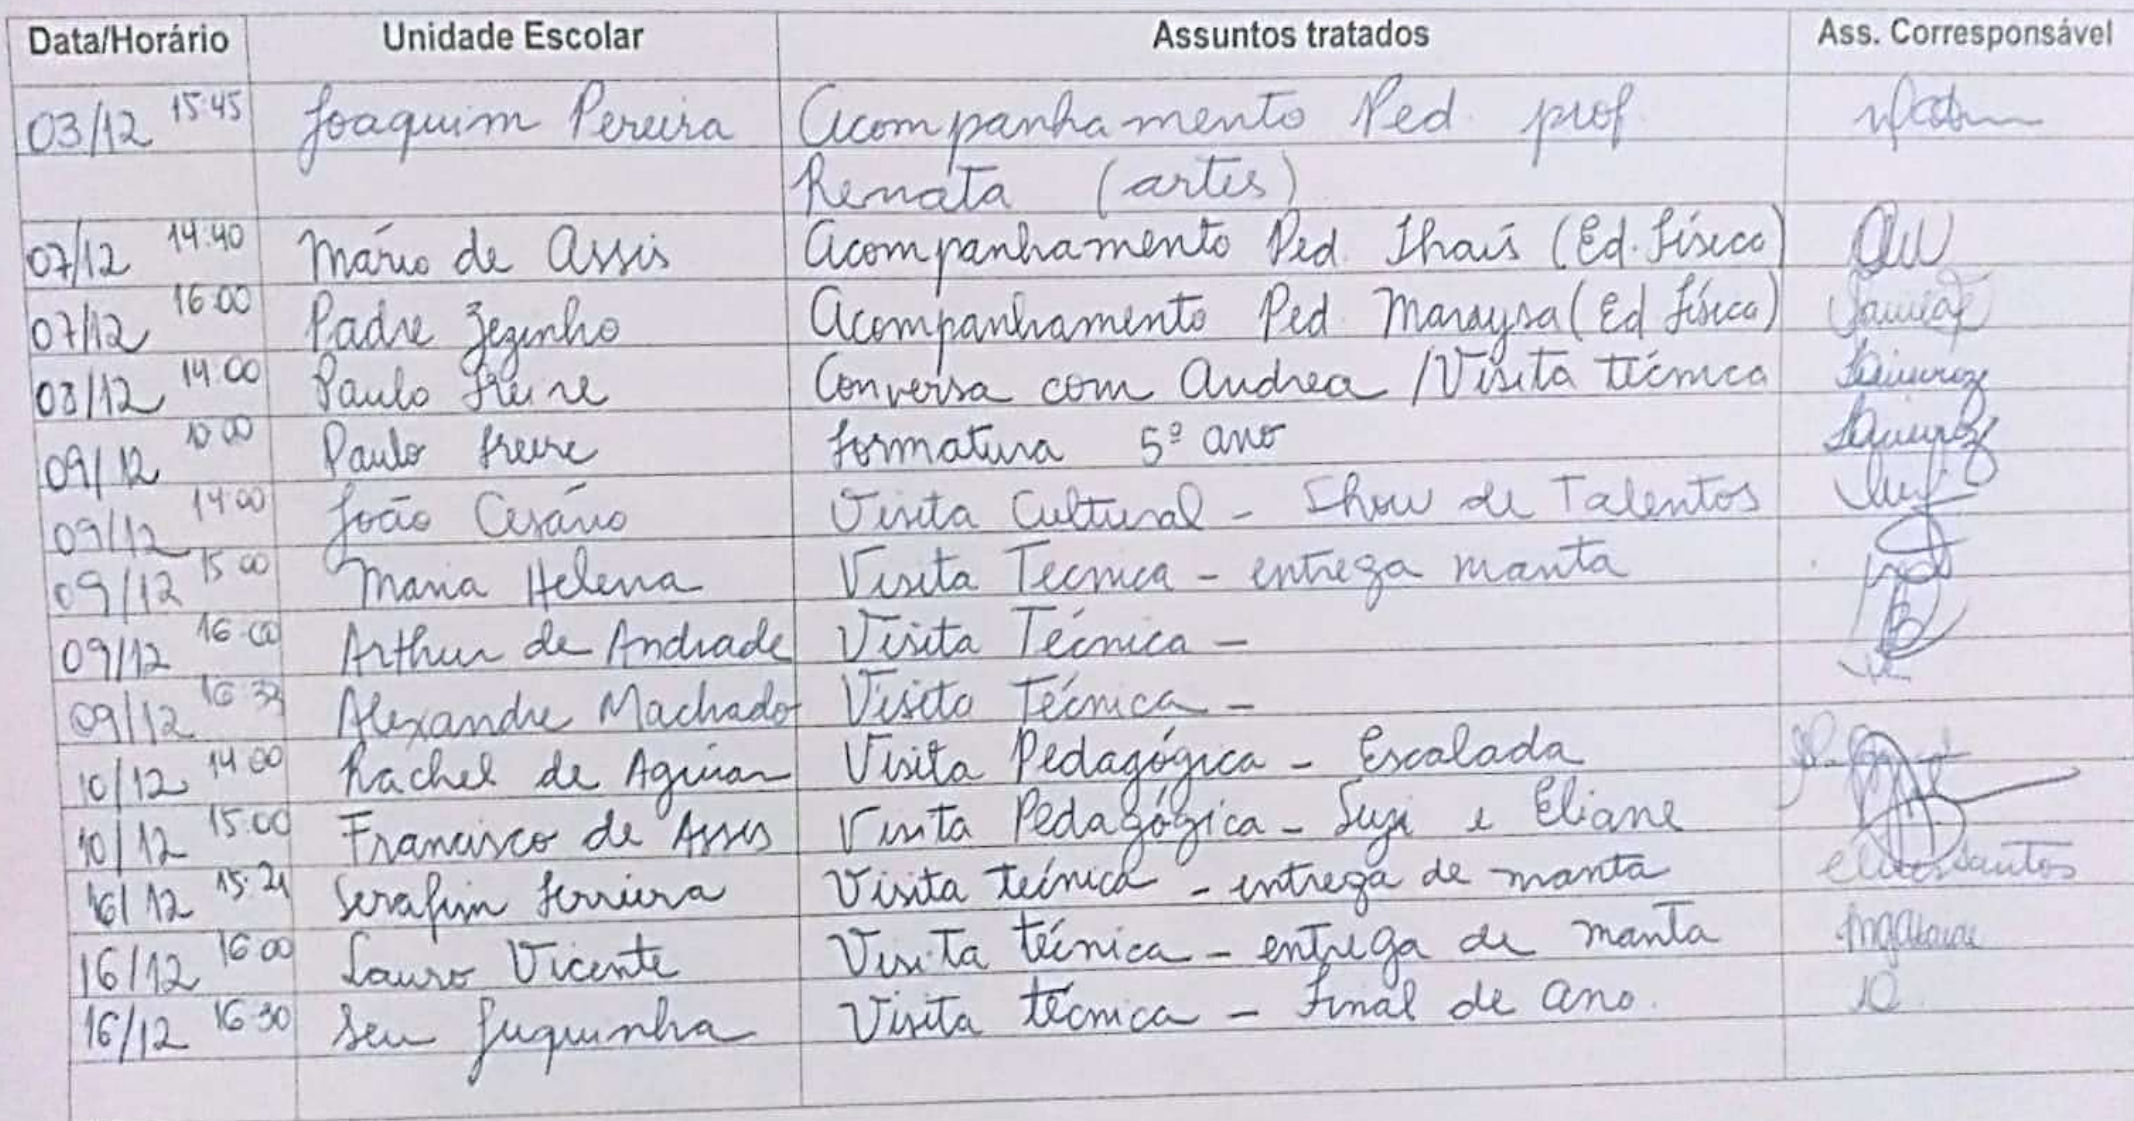 Data/Horário Unidade Escolar Assuntos tratados Ass. Corresponsável
03/12 15:45 Joaquim Pereira Acompanhamento Ped. prof.
Renata (artes)
07/12 14:40 Mário de Assis Acompanhamento Ped. Thaís (Ed. Física)
07/12 16:00 Padre Zezinho Acompanhamento Ped. Maraysa (Ed Física)
08/12 14:00 Paulo Freire Conversa com Andrea / Visita técnica
09/12 10:00 Paulo Freire Formatura 5º ano
09/12 14:00 João Cesário Visita Cultural - Show de Talentos
09/12 15:00 Maria Helena Visita Tecnica - entrega manta
09/12 16:00 Arthur de Andrade Visita Técnica -
09/12 Alexandre Machado Visita Técnica -
10/12 14:00 Rachel de Aguiar Visita Pedagógica - Escalada
10/12 15:00 Francisco de Assis Visita Pedagógica - Suzi e Eliane
16/12 15:21 Serafim Ferreira Visita técnica - entrega de manta
16/12 16:00 Lauro Vicente Visita técnica - entrega de manta
16/12 16:30 Seu Juquinha Visita técnica - Final de ano.